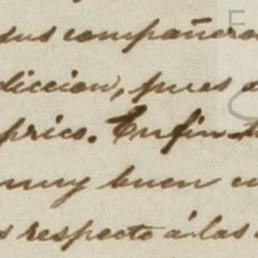 sus compañero
diccion, pues
prico. En fin
muy buen
respecto á las